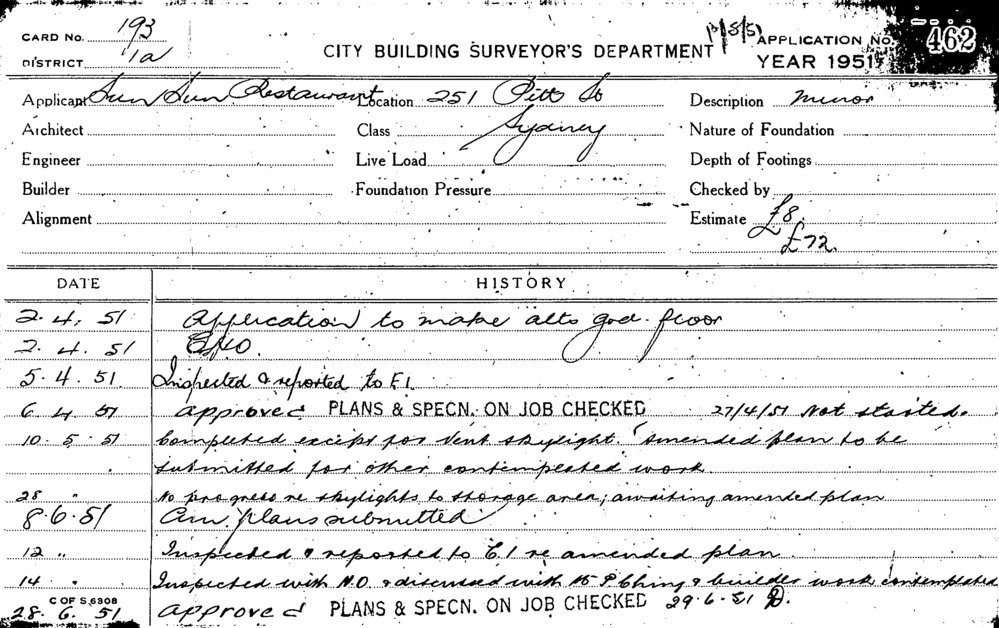 CARD No. 193
DISTRICT 1a
CITY BUILDING SURVEYOR'S DEPARTMENT
APPLICATION No. 462
YEAR 1951
Applicant Sun Sun Restaurant Location 251 Pitt St Description minor
Architect Class Sydney Nature of Foundation
Engineer Live Load Depth of Footings
Builder Foundation Pressure Checked by
Alignment Estimate £8
£72.
DATE HISTORY
2.4.51 Application to make alts grd. floor
2.4.51
5.4.51. Inspected & reported to E.I.
6 4 51 approved PLANS & SPECN. ON JOB CHECKED 27/4/51 Not started.
10.5.51 Completed except for vent skylight. Amended plan to be
submitted for other contemplated work.
28 " No progress re skylights to storage area; awaiting amended plan
8.6.51 Am. plans submitted
12 " Inspected & reported to E.I re amended plan.
14 " Inspected with N.O & discussed with P Ching & builder work contemplated
C OF S 6308
28.6.51 approved PLANS & SPECN. ON JOB CHECKED 29.6.51